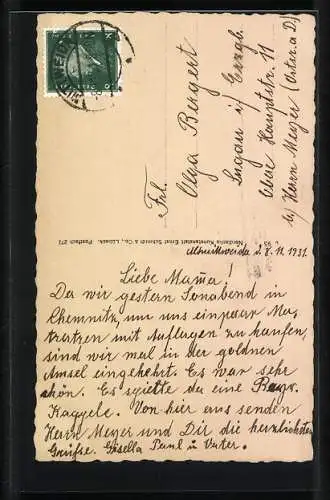 Frl.
Olga Bergert
Lugau i/ Erzgb.
Obere Hauptstr. 11
b/ Herrn Meyer
Nordische Kunstanstalt Ernst Schmidt & Co., Lübeck. Postfach 272
d. 8.11.1931.
Liebe Mama!
Da wir gestern Sonabend in
Chemnitz, um uns ein paar Ma-
tratzen mit Auflagen zu kaufen,
sind wir mal in der goldnen
Amsel eingekehrt. Es war sehr
schön. Es spielte da eine
Kappele. Von hier aus senden
Herrn Meyer und Dir die herzlichsten
Grüsse. Gisella Paul u. Vater.